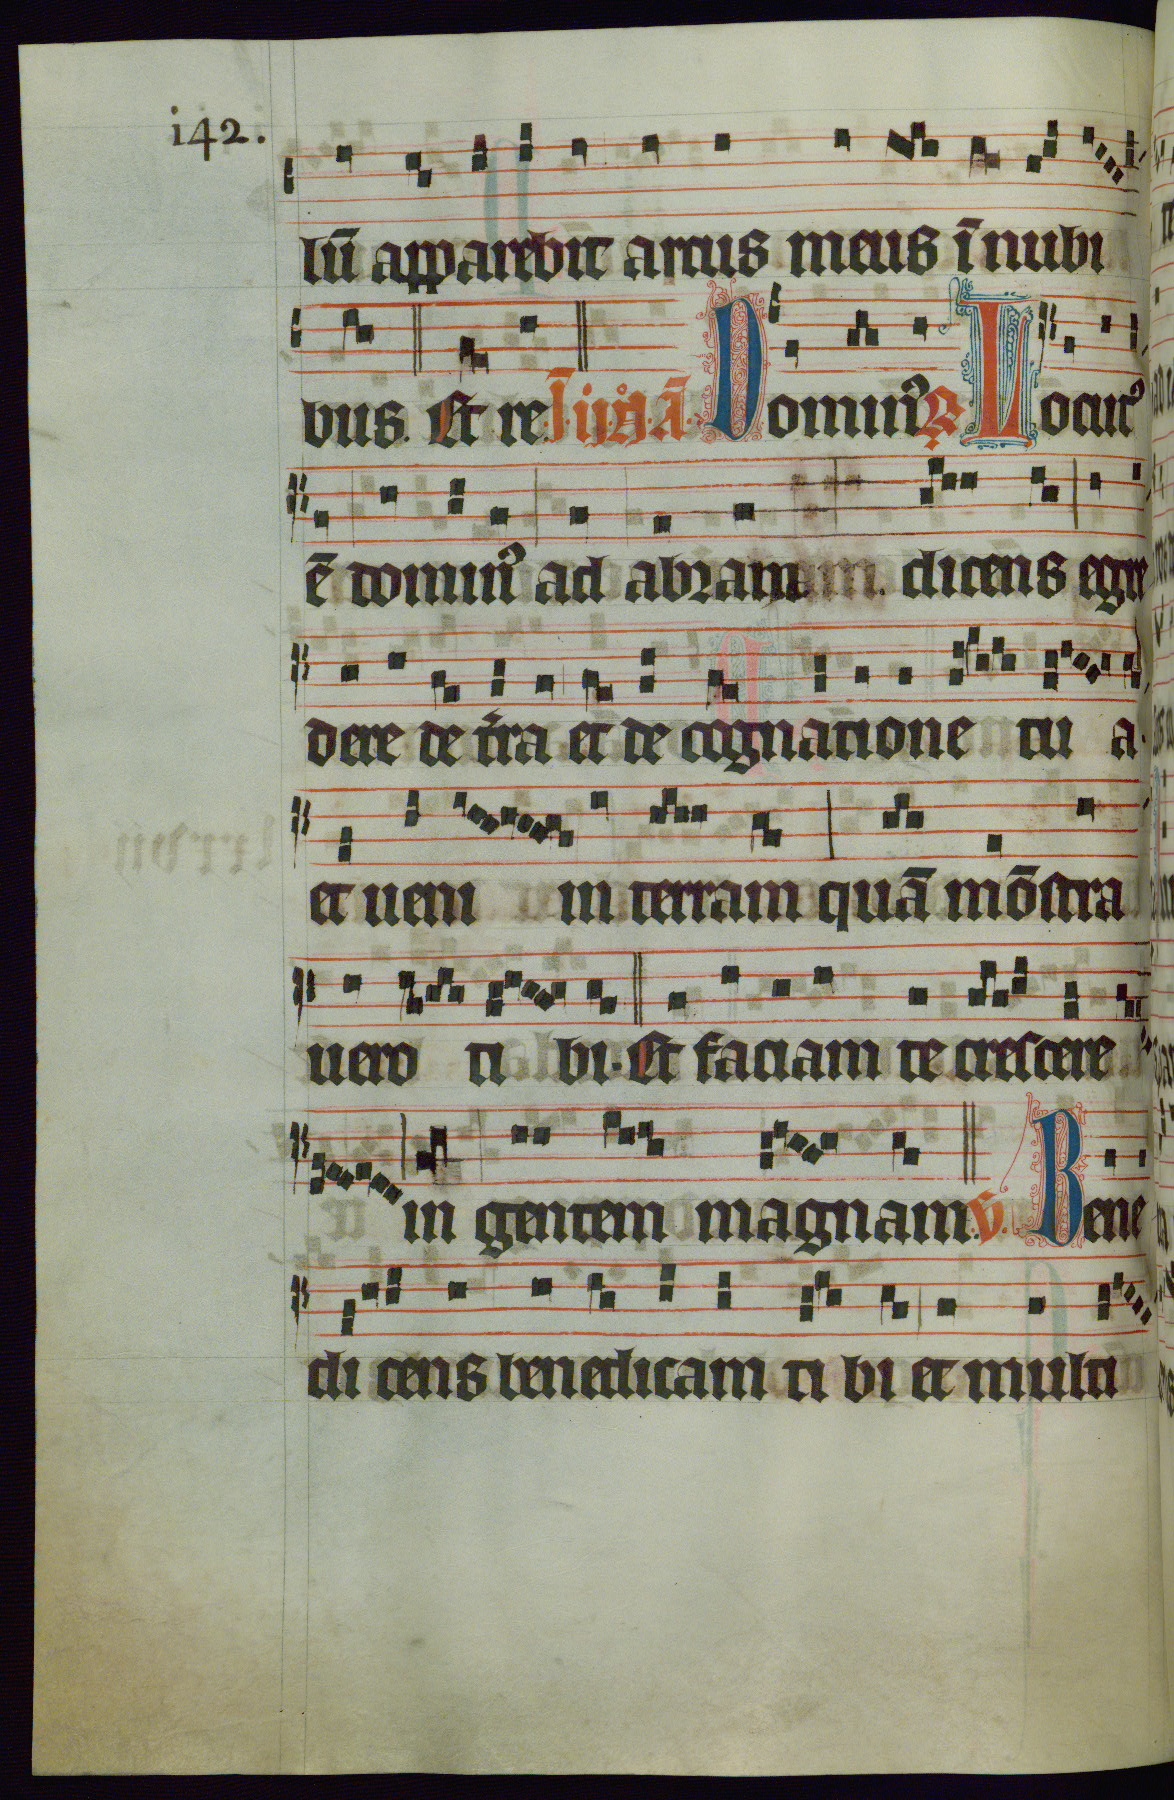 i42.
lū apparebit arcus meus ī nubi
bus. Et re. I. ij. ā. Dominꝰ ℟ Locutꝰ
ē dominꝰ ad abraam. dicens egre
dere de t̄ra et de cognatione tu a
et ueni in terram quā mōstra
uero ti bi. Et faciam te crescere
in gentem magnam. v̄. Bene
di cens benedicam ti bi et multi